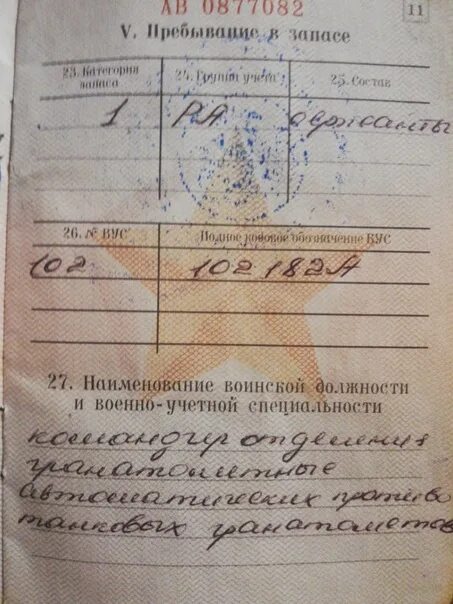 АВ 0877082
11
V. Пребывание в запасе
23. Категория запаса
24. Группа учета
25. Состав
1 РА сержанты
26. № ВУС
Полное кодовое обозначение ВУС
102 102182А
27. Наименование воинской должности
и военно-учетной специальности
командир отделения
гранатометные
автоматических противо
танковых гранатометов